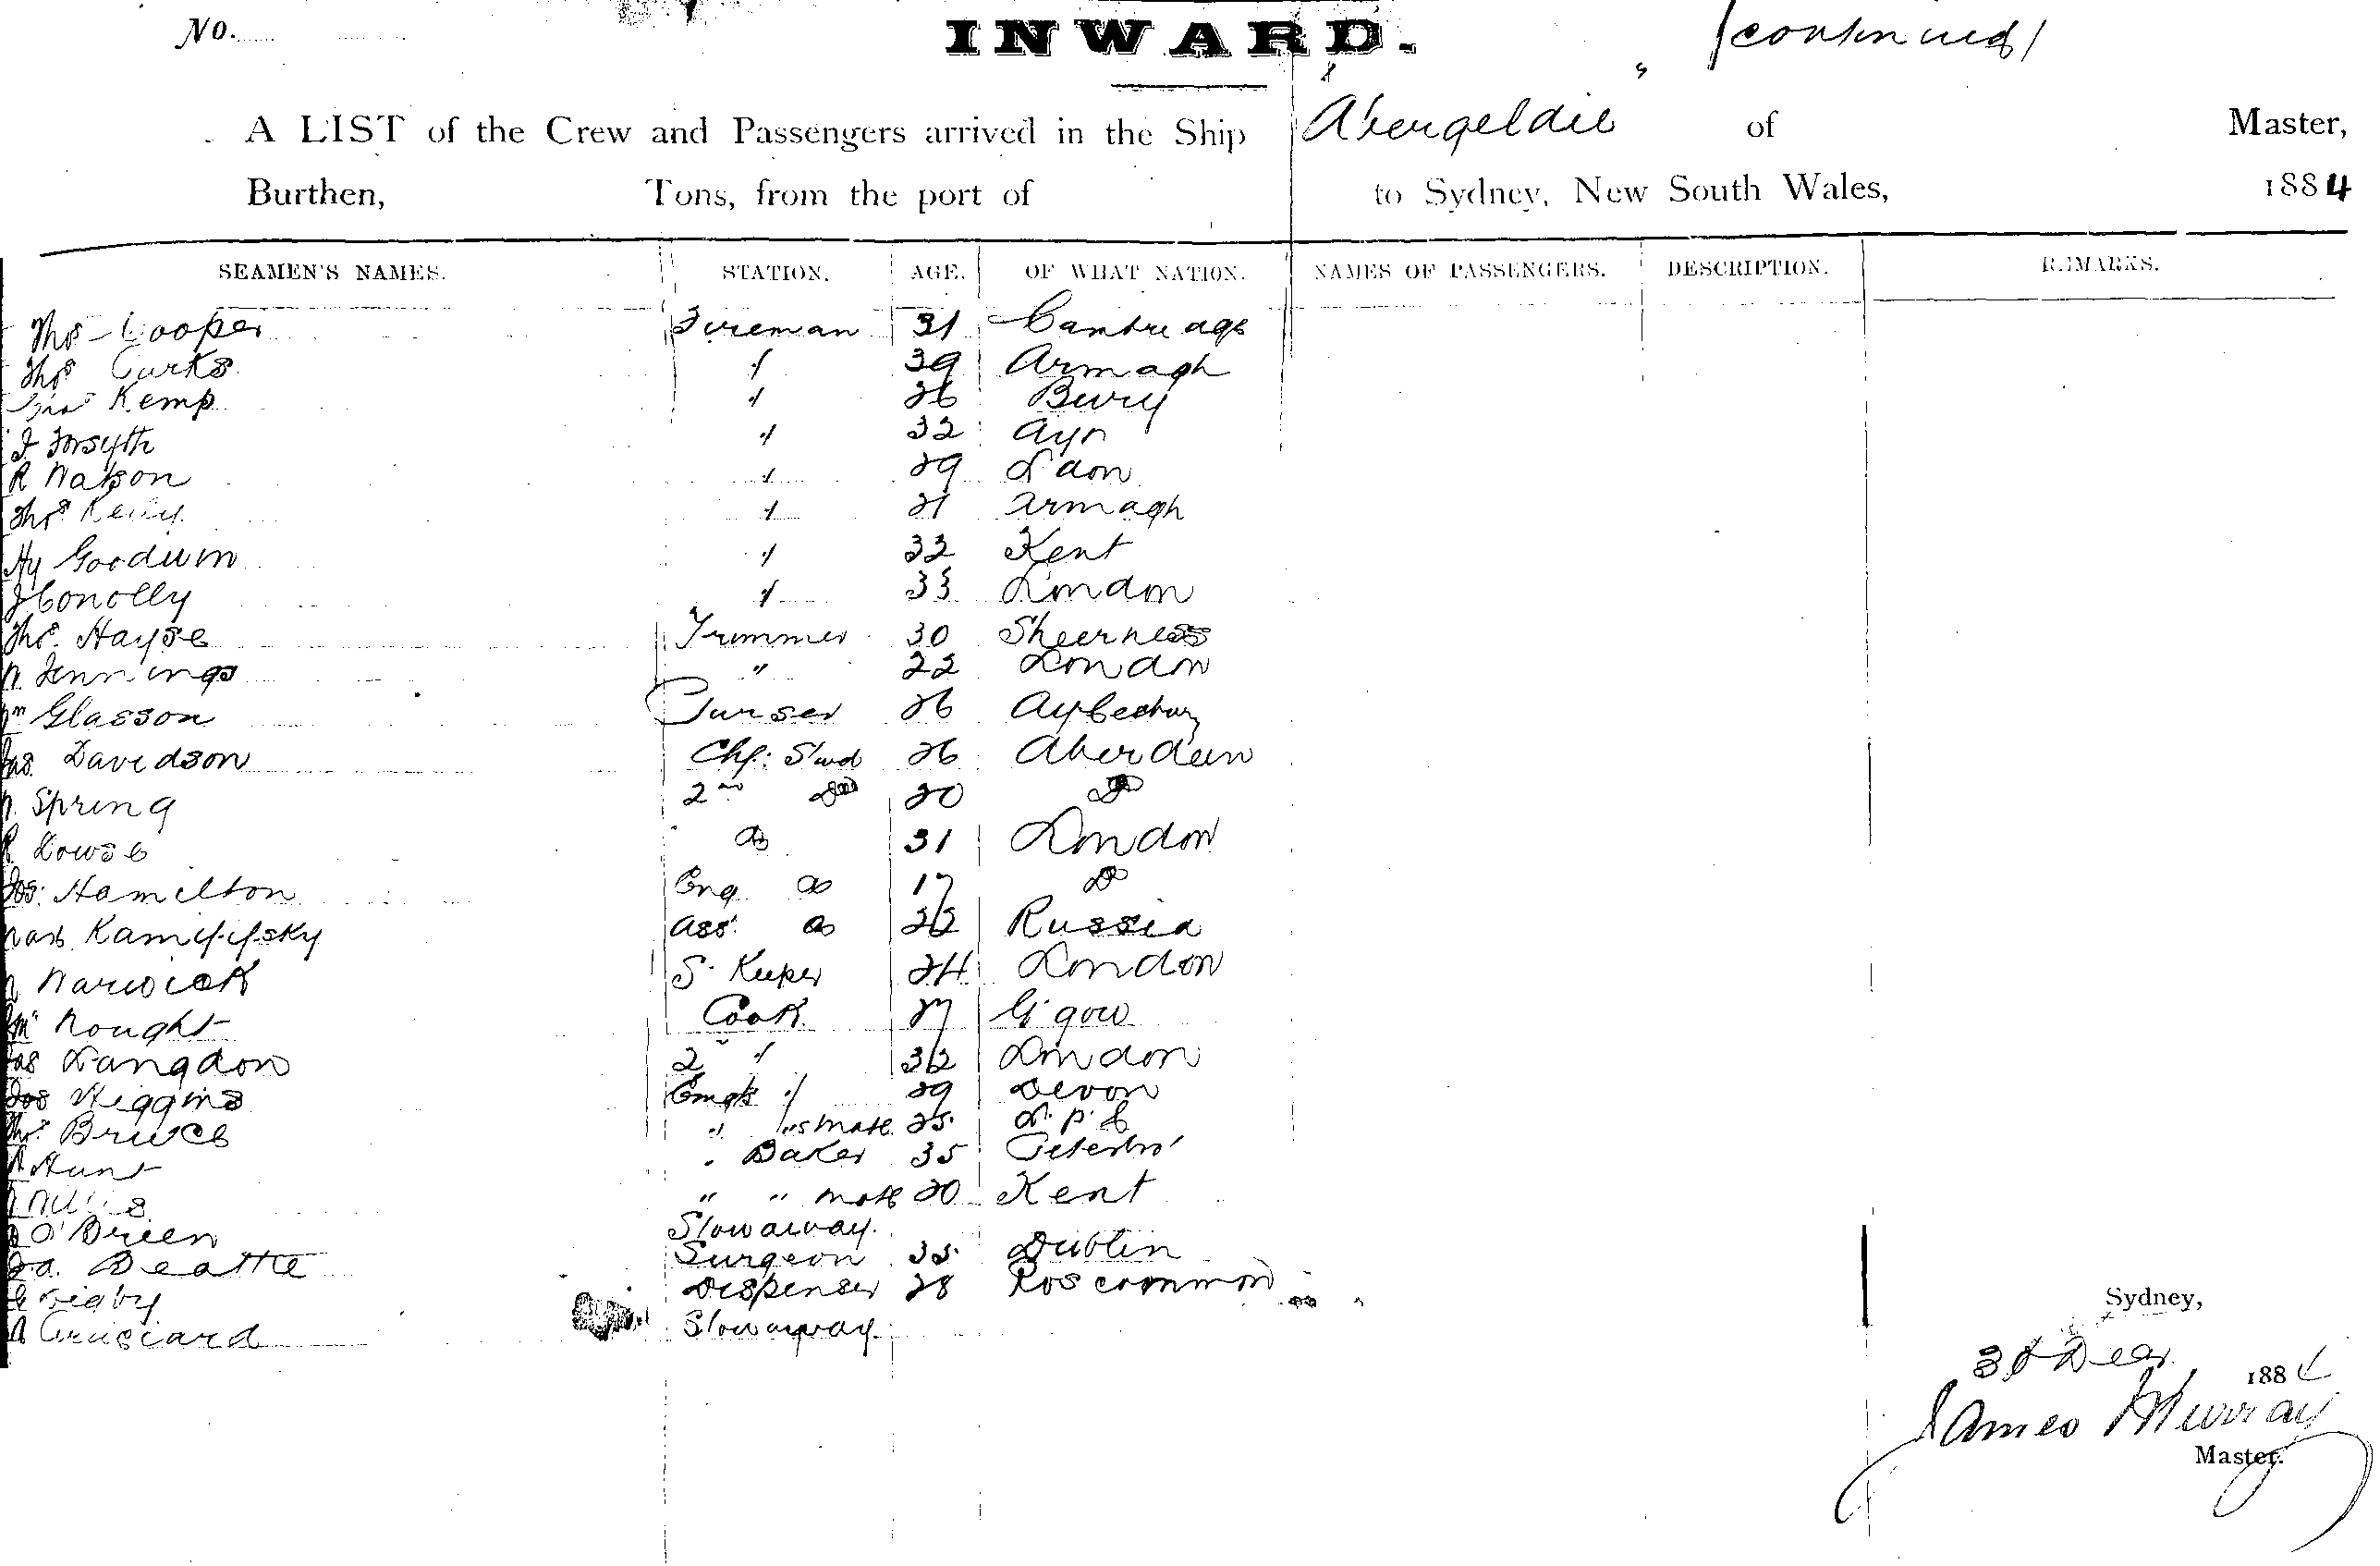 No. INWARD. (continued)
A LIST of the Crew and Passengers arrived in the Ship Abergeldie of Master,
Burthen, Tons, from the port of to Sydney, New South Wales, 1884
SEAMEN'S NAMES. STATION. AGE. OF WHAT NATION. NAMES OF PASSENGERS. DESCRIPTION. REMARKS.
Thos Cooper Fireman 31 Cambridge
Thos Curks " 39 Armagh
Kemp " 26 Bury
J Forsyth " 32 Ayr
R Watson " 29 L'don
Thos Kelly " 21 Armagh
Hy Goodwin " 32 Kent
J Conolly " 33 London
Thos. Hayse Trimmer 30 Sheerness
W Jennings " 22 London
Wm Glasson Purser 26
Jas. Davidson Chf: Stwd 26 Aberdeen
W. Spring 2nd Do 20 Do
R. Lowse Do 31 London
Jos: Hamilton Eng Do 17 Do
Ass: Do 22 Russia
W Warwick S. Keeper 24 London
Nought Cook 27 G'gow
Jas Langdon 2 " 32 London
Jos Higgins " 29 Devon
Thos. Bruce " "s mate 25 L. p. l
Hunt " Baker 35 Peterbro'
Willis " " mate 20 Kent
O'Brien Stowaway.
Beattie Surgeon 35 Dublin
Rigby Dispenser 28 Roscommon
Stowaway.
Sydney,
31 Decr. 1884
James Murray
Master.